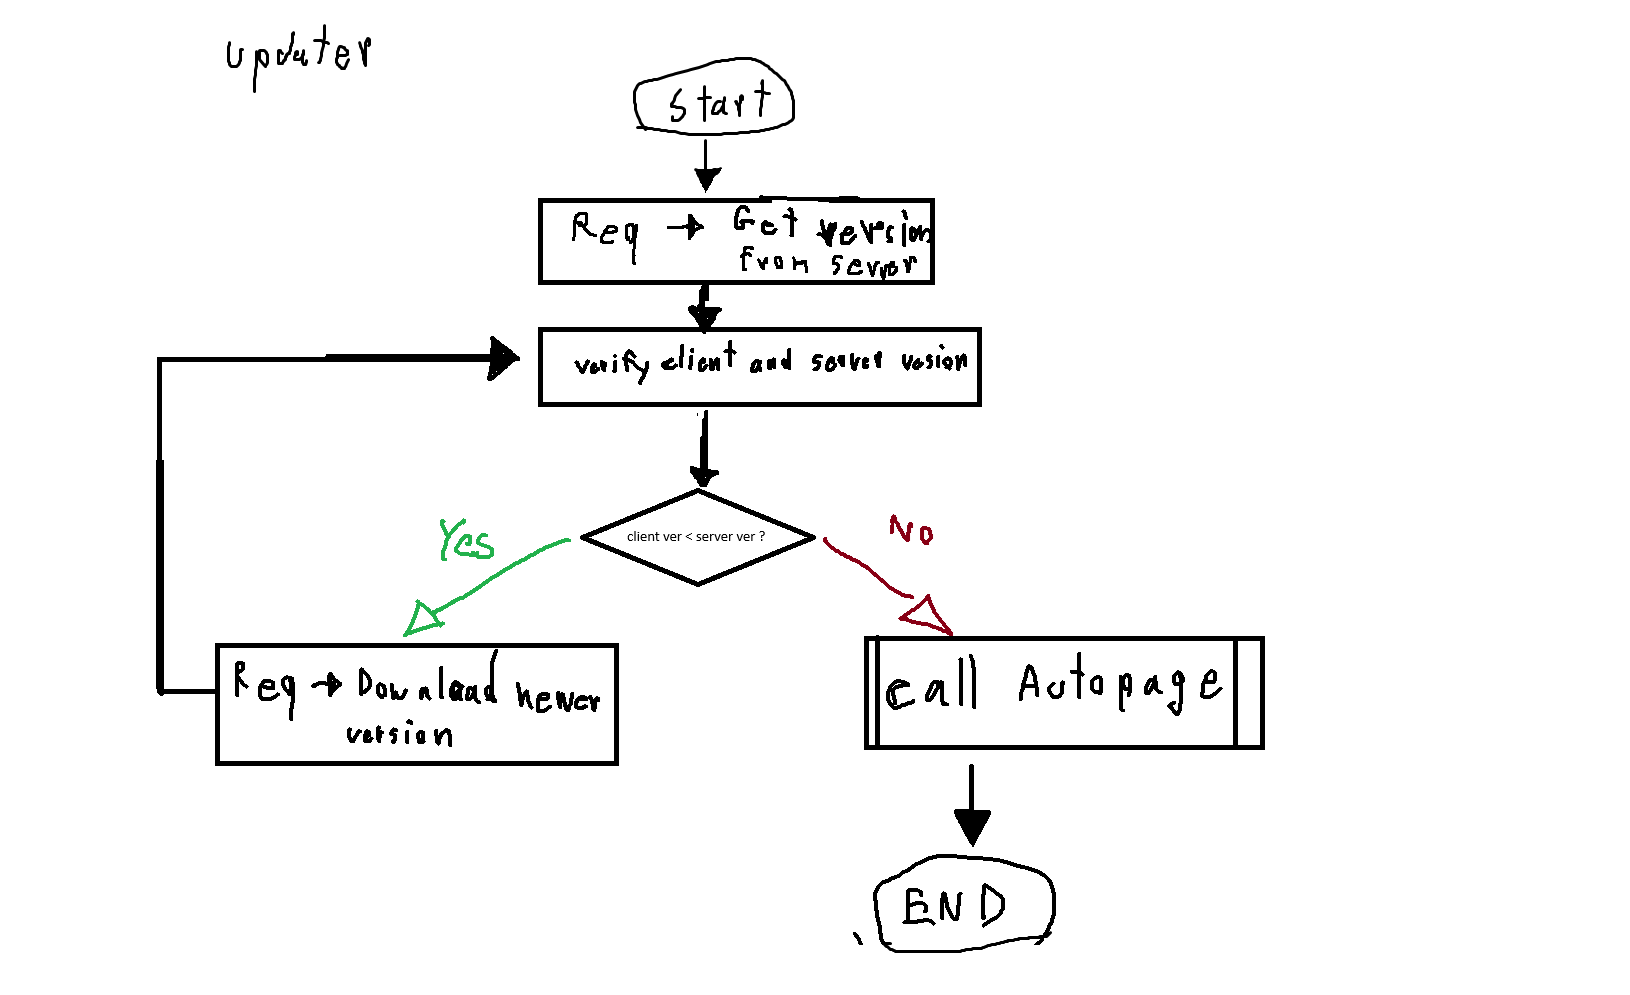 updater
Start
Req → Get version
from server
verify client and server vesion
client ver < server ver ?
Yes
No
Req → Download newer
version
call Autopage
END